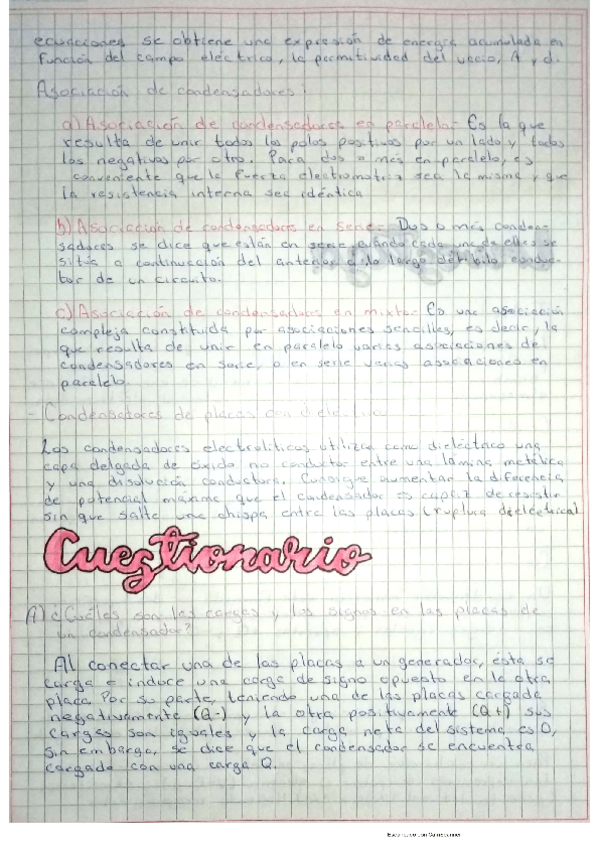 ecuaciones se obtiene una expresión de energía acumulada en
función del campo eléctrico, la permitividad del vacío, A y d.
Asociación de condensadores:
a) Asociación de condensadores en paralelo- Es la que
resulta de unir todos los polos positivos por un lado y todos
los negativos por otro. Para dos o más en paralelo, es
conveniente que la fuerza electromotriz sea la misma y que
la resistencia interna sea idéntica
b) Asociación de condensadores en serie- Dos o más conden-
sadores se dice que están en serie cuando cada uno de ellos se
sitúa a continuación del anterior a lo largo del hilo conduc-
tor de un circuito.
c) Asociación de condensadores en mixto- Es una asociación
compleja constituida por asociaciones sencillas, es decir, la
que resulta de unir en paralelo varias asociaciones de
condensadores en serie, o en serie varias asociaciones en
paralelo.
- Condensadores de placas con dieléctrico
Los condensadores electrolíticos utiliza como dieléctrico una
capa delgada de óxido no conductor entre una lámina metálica
y una disolución conductora. Consigue aumentar la diferencia
de potencial máxima que el condensador es capaz de resistir
sin que salte una chispa entre las placas (ruptura dieléctrica)
Cuestionario
A) ¿Cuáles son las cargas y los signos en las placas de
un condensador?
Al conectar una de las placas a un generador, ésta se
carga e induce una carga de signo opuesto en la otra
placa. Por su parte, teniendo una de las placas cargada
negativamente (Q-) y la otra positivamente (Q+) sus
cargas son iguales y la carga neta del sistema es 0,
sin embargo, se dice que el condensador se encuentra
cargado con una carga Q.
Escaneado con CamScanner